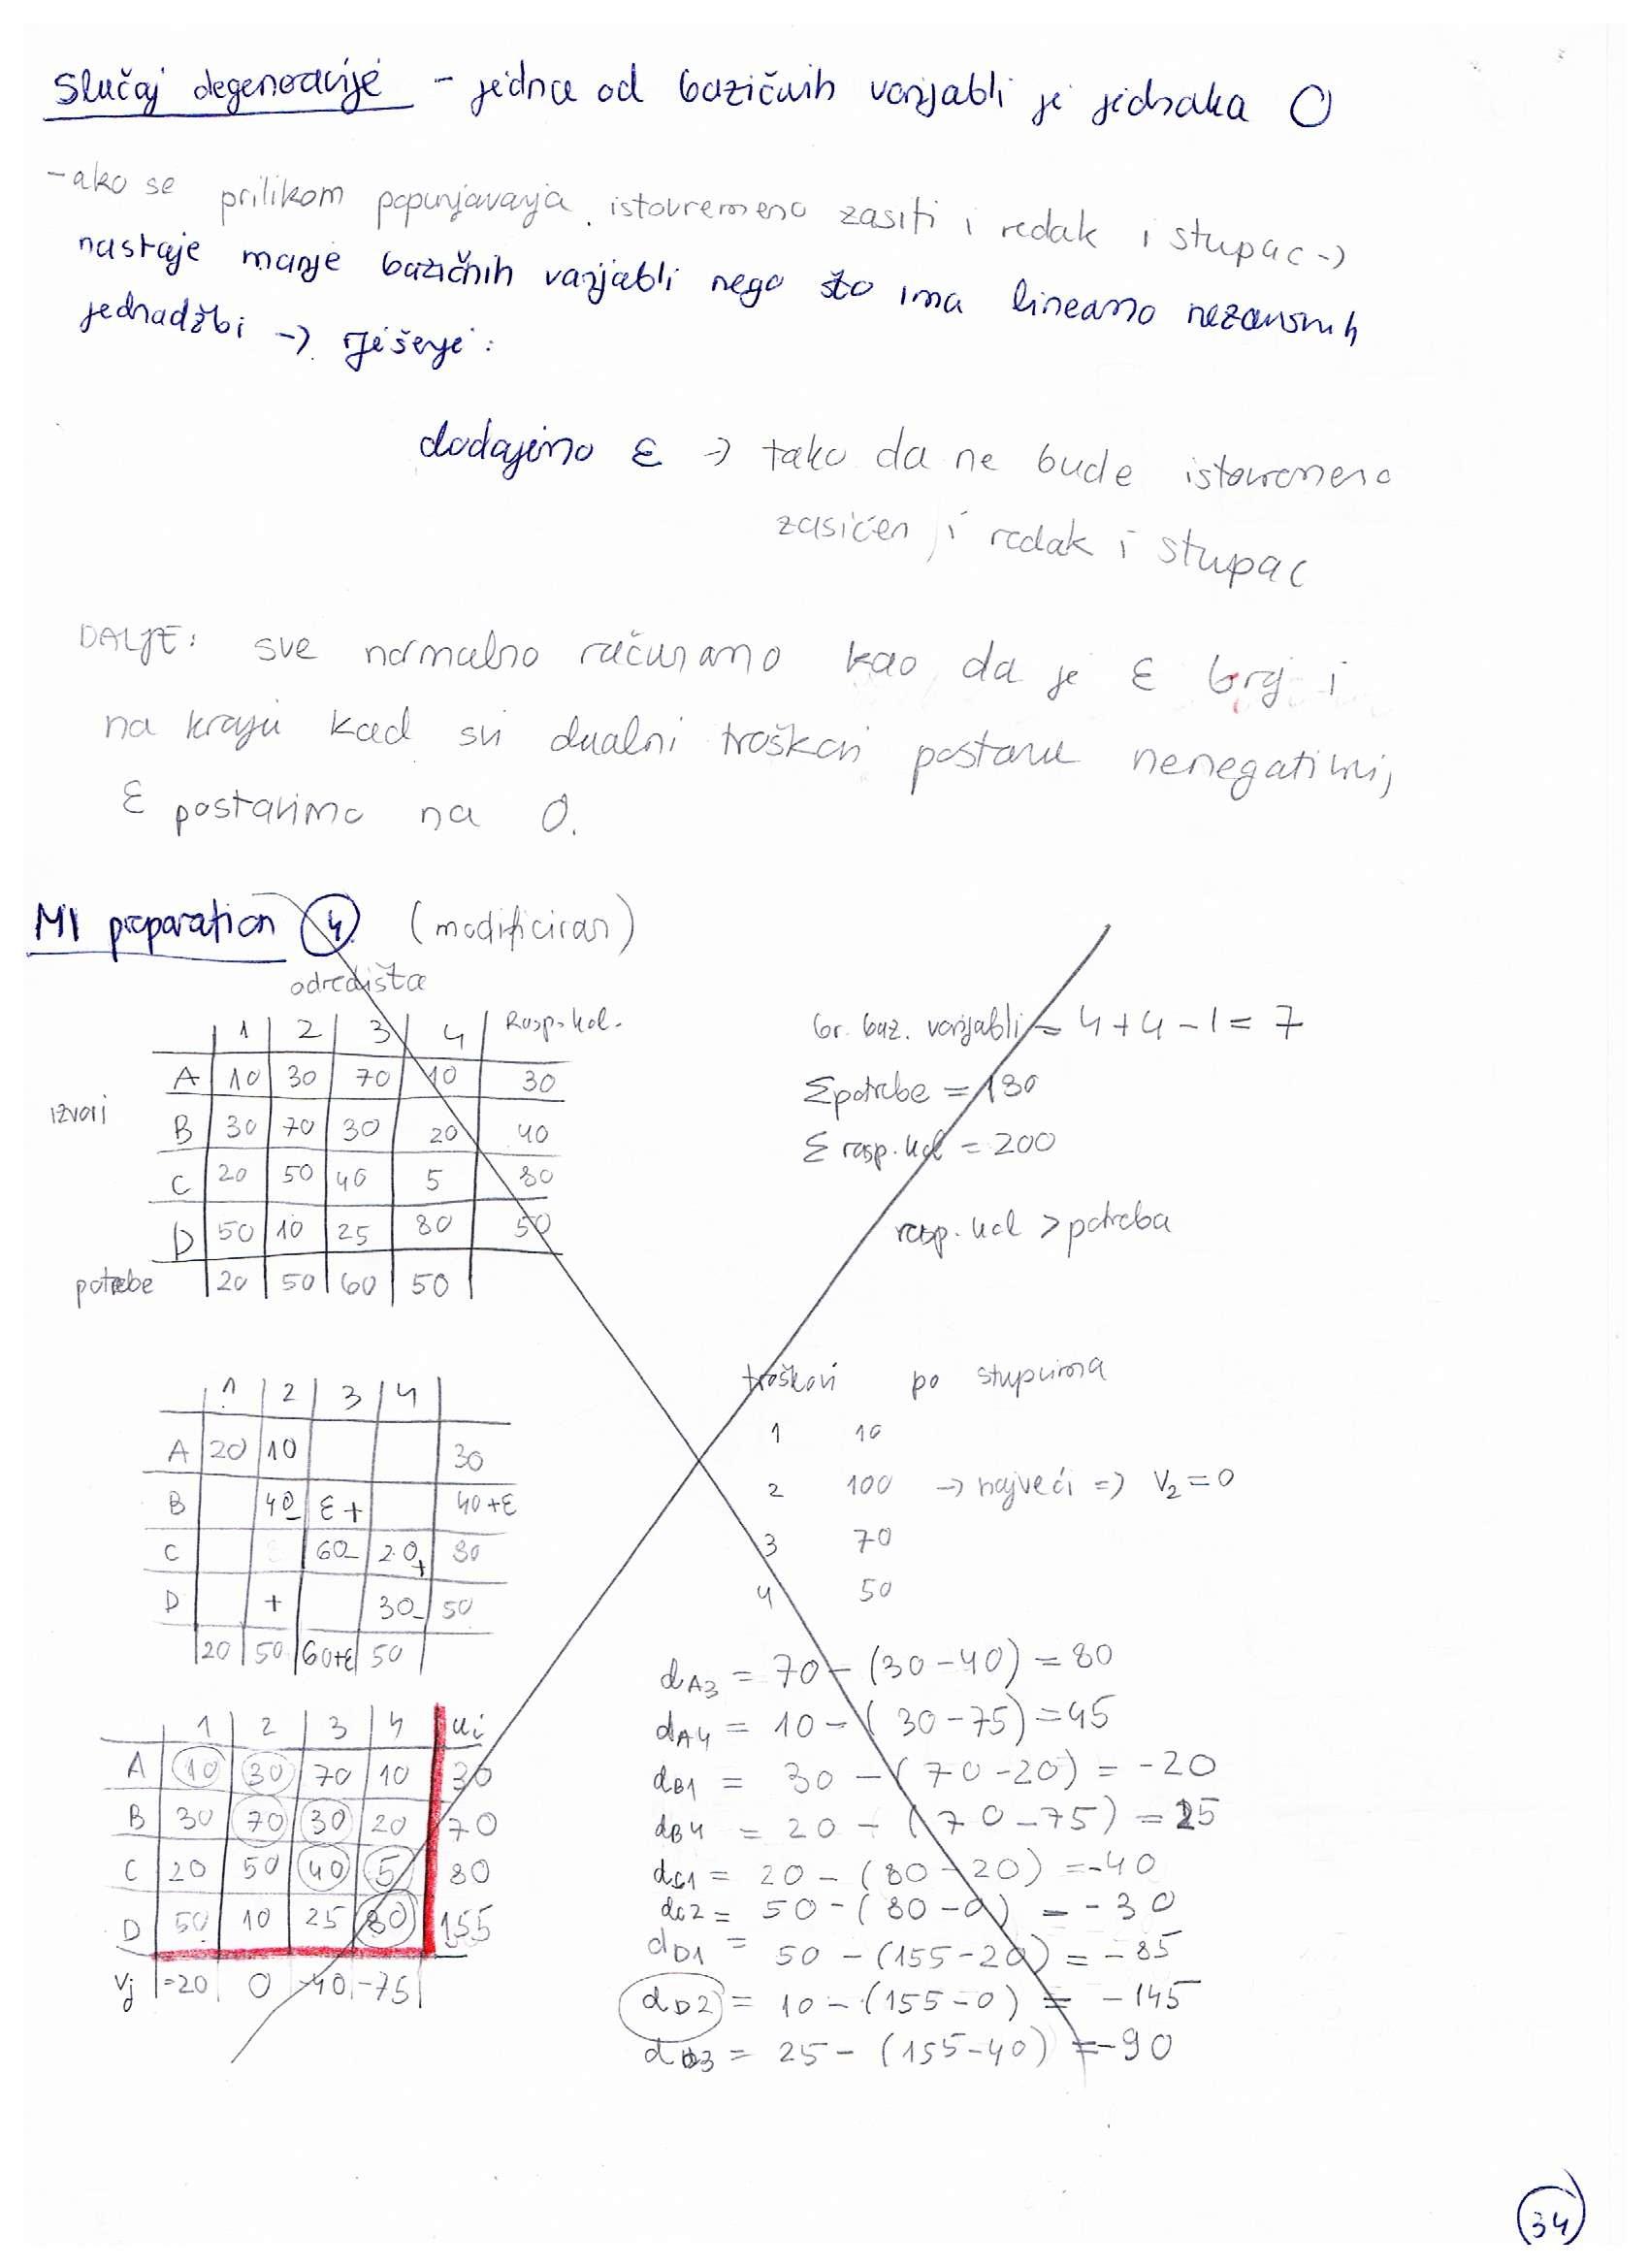 Slučaj degeneracije - jedna od bazičnih varijabli je jednaka 0
- ako se prilikom popunjavanja istovremeno zasiti i redak i stupac ->
nastaje manje bazičnih varijabli nego što ima linearno nezavisnih
jednadžbi -> rješenje:
dodajemo ε -> tako da ne bude istovremeno
zasićen i redak i stupac
DALJE: sve normalno računamo kao da je ε broj i
na kraju kad svi dualni troškovi postanu nenegativni,
ε postavimo na 0.
MI preparation 4 (modificiran)
odredišta
1 2 3 4 Rasp. kol.
A 10 30 70 10 30
izvori
B 30 70 30 20 40
C 20 50 40 5 80
D 50 10 25 80 50
potrebe 20 50 60 50
br. baz. varijabli = 4+4-1 = 7
Σpotrebe = 180
Σ rasp. kol = 200
rasp. kol > potreba
1 2 3 4
A 20 10 30
B 40- ε+ 40+ε
C 60- 20+ 80
D + 30- 50
20 50 60+ε 50
troškovi po stupcima
1 10
2 100 -> najveći => V2=0
3 70
4 50
1 2 3 4 ui
A 10 30 70 10 30
B 30 70 30 20 70
C 20 50 40 5 80
D 50 10 25 80 155
Vj -20 0 -40 -75
dA3 = 70 - (30-40) = 80
dA4 = 10 - (30-75) = 45
dB1 = 30 - (70-20) = -20
dB4 = 20 - (70-75) = 25
dC1 = 20 - (80-20) = -40
dC2 = 50 - (80-0) = -30
dD1 = 50 - (155-20) = -85
dD2 = 10 - (155-0) = -145
dD3 = 25 - (155-40) = -90
34